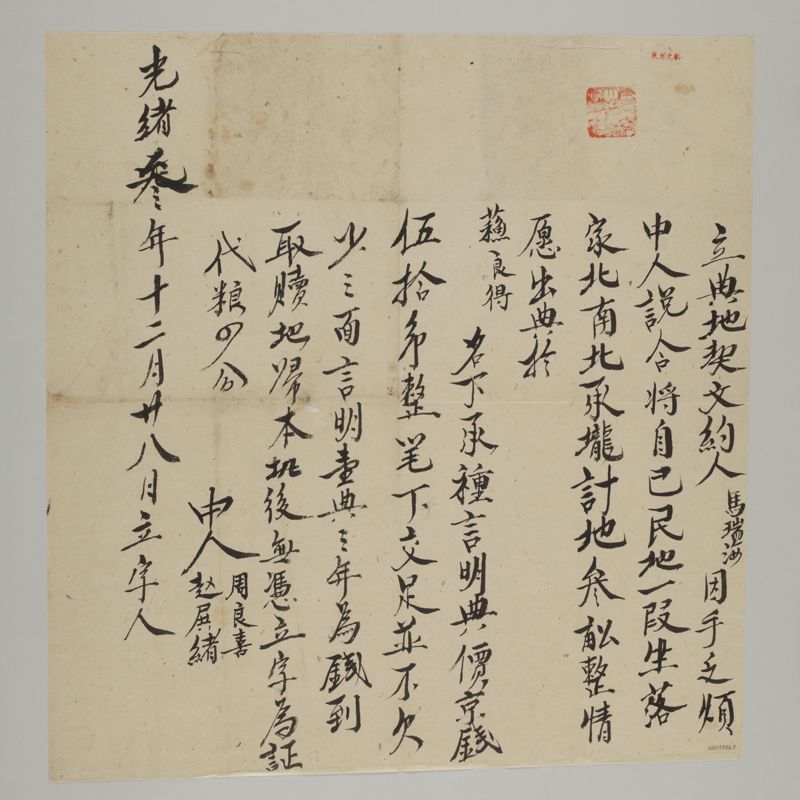 立典地契文約人馬瑞汝因手乏煩
中人説合将自己民地一叚坐落
家北南北承壠計地叁畝整情
愿出典於
蘓良得
名下承種言明典價京錢
伍拾弔整筆下交足並不欠
少三面言明壹典三年為錢到
取贖地歸本批後無憑立字為証
代粮四分
中人
周良喜
赵展緒
光緒叁年十二月廿八日立字人